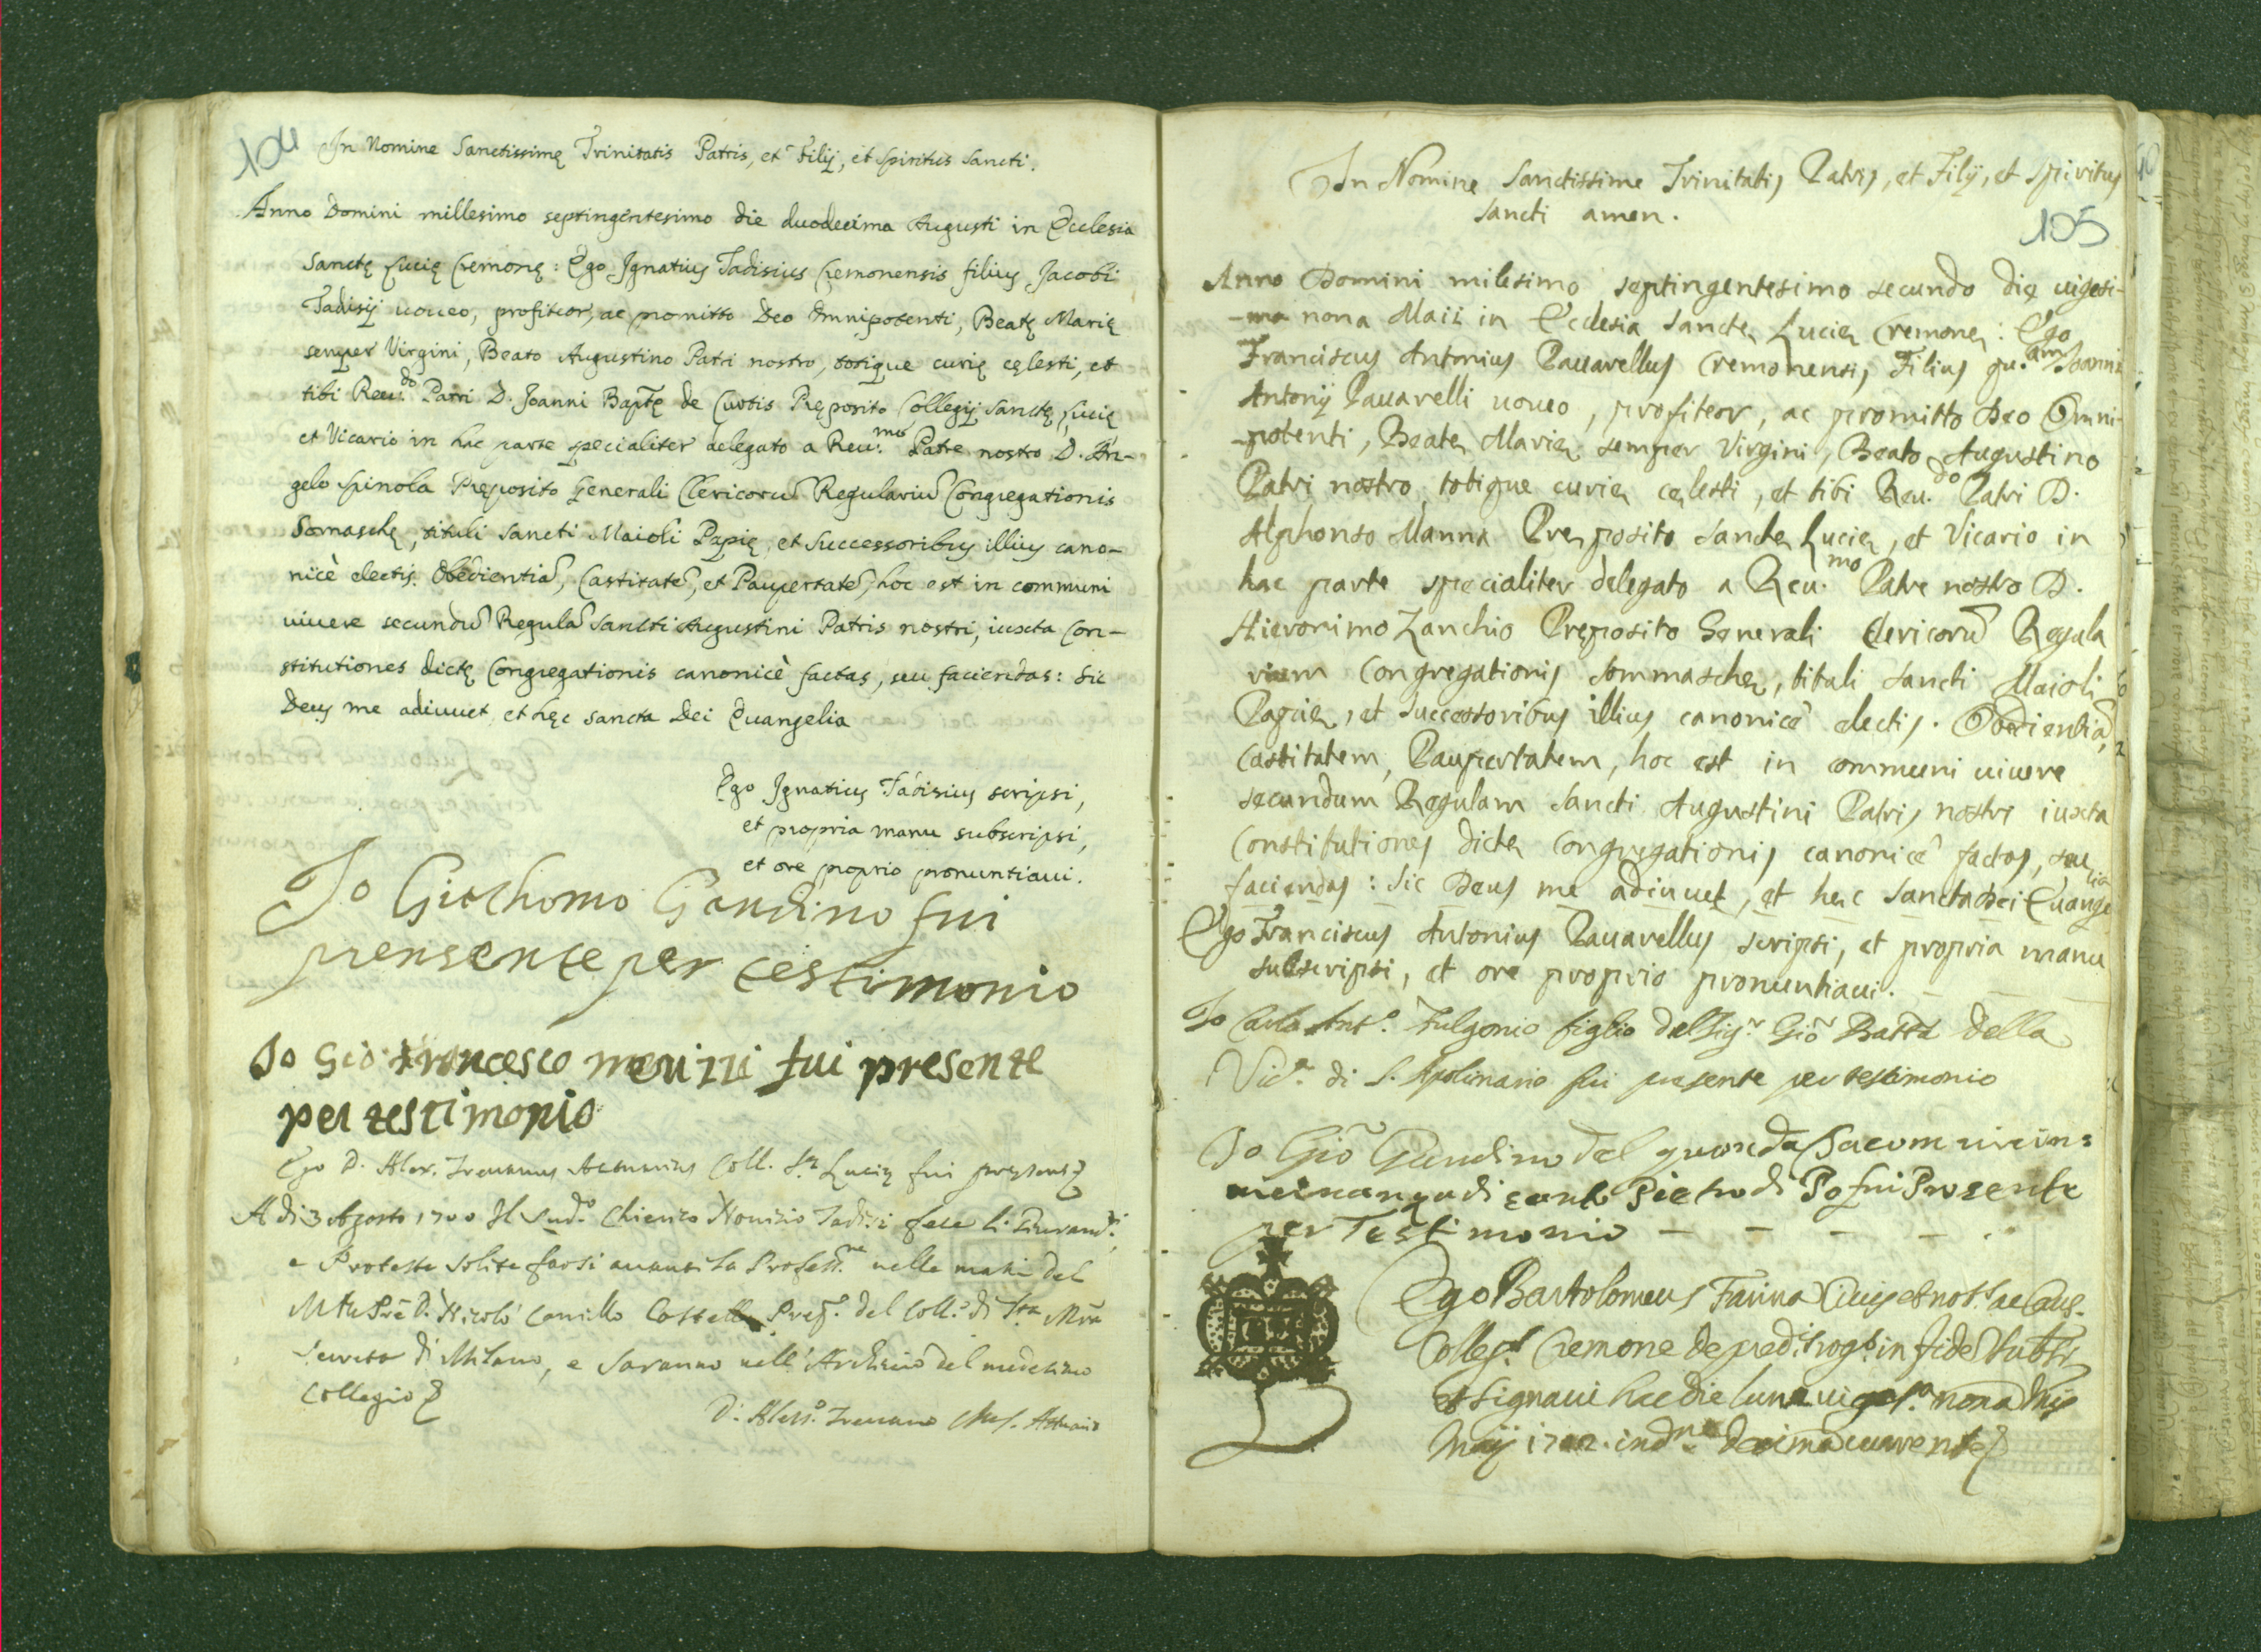 104
In Nomine Sanctissimę Trinitatis Patris, et Filij, et Spiritus Sancti.
Anno Domini millesimo septingentesimo die duodecima Augusti in Ecclesia
Sanctę Lucię Cremonę: Ego Ignatius Tadisius Cremonensis filius Jacobi
Tadisij uoueo, profiteor, ac promitto Deo Omnipotenti, Beatę Marię
semper Virgini, Beato Augustino Patri nostro, totique curię cęlesti, et
tibi Reu.do Patri D. Joanni Baptę de Curtis Pręposito Collegij Sanctę Lucię
et Vicario in hac parte specialiter delegato a Reu.mo Patre nostro D. An-
gelo Spinola Pręposito Generali Clericorũ Regulariũ Congregationis
Somaschę, tituli Sancti Maioli Papię, et Successoribus illius cano-
nicè electis. Obedientiã, Castitatẽ, et Paupertatẽ, hoc est in communi
uiuere secundũ Regulã Sancti Augustini Patris nostri, iuxta Con-
stitutiones dictę Congregationis canonicè factas, seu faciendas: Sic
Deus me adiuuet, et hęc sancta Dei Euangelia
Ego Ignatius Tadisius scripsi,
et propria manu subscripsi,
et ore proprio pronuntiaui.
Io Giachomo Gandino fui
prensente per testimonio
Io Gio: Francesco merizzi fui presente
per testimonio
Ego D. Alex. Tremanus Coll. S.tę Lucię fui pręsens
A di 3 Agosto 1700 Il Sud.o Chierico Nouizio Tadisi fece li
e Proteste solite farsi auanti la Profess.ne nelle mani del
M.to P.re D. Nicolò Camillo Castelli Prep.o del Coll.o di S.ta M.ra
Secreta di Milano, e saranno nell'Archiuio del medesimo
Collegio
105
In Nomine Sanctissime Trinitatis Patris, et Filij, et Spiritus
Sancti amen.
Anno Domini milesimo septingentesimo secundo die uigesi-
-ma nona Maii in Ecclesia Sanctę Lucię Cremonę: Ego
Franciscus Antonius Pauarellus Cremonensis Filius qu.am Joannis
Antonij Pauarelli uoueo, profiteor, ac promitto Deo Omni-
-potenti, Beatę Marię semper Virgini, Beato Augustino
Patri nostro totique curię cęlesti, et tibi Reu.do Patri D.
Alphonso Manna Pręposito Sanctę Lucię, et Vicario in
hac parte specialiter delegato a Reu.mo Patre nostro D.
Hieronimo Zanchio Pręposito Generali Clericorũ Regula
rium Congregationis Sommaschę, tituli Sancti Maioli
Papię, et Successoribus illius canonicè electis. Obedientiã,
Castitatem, Paupertatem, hoc est in communi uiuere
secundum Regulam Sancti Augustini Patris nostri iuxta
Constitutiones dictę Congregationis canonicè factas, seu
faciendas: Sic Deus me adiuuet, et hęc Sancta Dei Euangelia
Ego Franciscus Antonius Pauarellus scripsi, et propria manu
subscripsi, et ore proprio pronuntiaui.
Io Carlo Ant.o Fulgonio figlio del Sig.r Gio Batta della
Vic.a di S. Apolinario fui presente per testimonio
Io Gio Gandino del quondã
di Pietro di Po fui Presente
per Testimonio
Ego Bartolomeus Farina Ciuis et not. ac Caus.
Colleg. Cremone de pred. rog. in fidẽ subs.
et signaui hac die lunæ uiges.a nona
Maij 1702. ind.ne decima currente